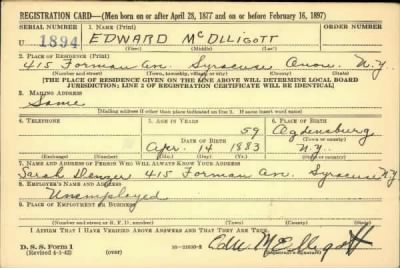 REGISTRATION CARD—(Men born on or after April 28, 1877 and on or before February 16, 1897)
SERIAL NUMBER 1. NAME (Print)
U 1894 EDWARD McOLLIGOTT
(First) (Middle) (Last)
2. PLACE OF RESIDENCE (Print)
415 Forman Av. Syracuse Onon. N.Y.
(Number and street) (Town, township, village, or city) (County) (State)
[THE PLACE OF RESIDENCE GIVEN ON THE LINE ABOVE WILL DETERMINE LOCAL BOARD
JURISDICTION; LINE 2 OF REGISTRATION CERTIFICATE WILL BE IDENTICAL]
3. MAILING ADDRESS
Same
[Mailing address if other than place indicated on line 2. If same insert word same]
4. TELEPHONE 5. AGE IN YEARS 6. PLACE OF BIRTH
59 Ogdensburg
DATE OF BIRTH (Town or county)
Apr. 14 1883 N.Y.
(Exchange) (Number) (Mo.) (Day) (Yr.) (State or country)
7. NAME AND ADDRESS OF PERSON WHO WILL ALWAYS KNOW YOUR ADDRESS
Sarah Denger 415 Forman Av. Syracuse N.Y.
8. EMPLOYER'S NAME AND ADDRESS
Unemployed
9. PLACE OF EMPLOYMENT OR BUSINESS
(Number and street or R. F. D. number) (Town) (County) (State)
I AFFIRM THAT I HAVE VERIFIED ABOVE ANSWERS AND THAT THEY ARE TRUE.
D. S. S. Form 1
(Revised 4-1-42) (over)
Edw. McElligott